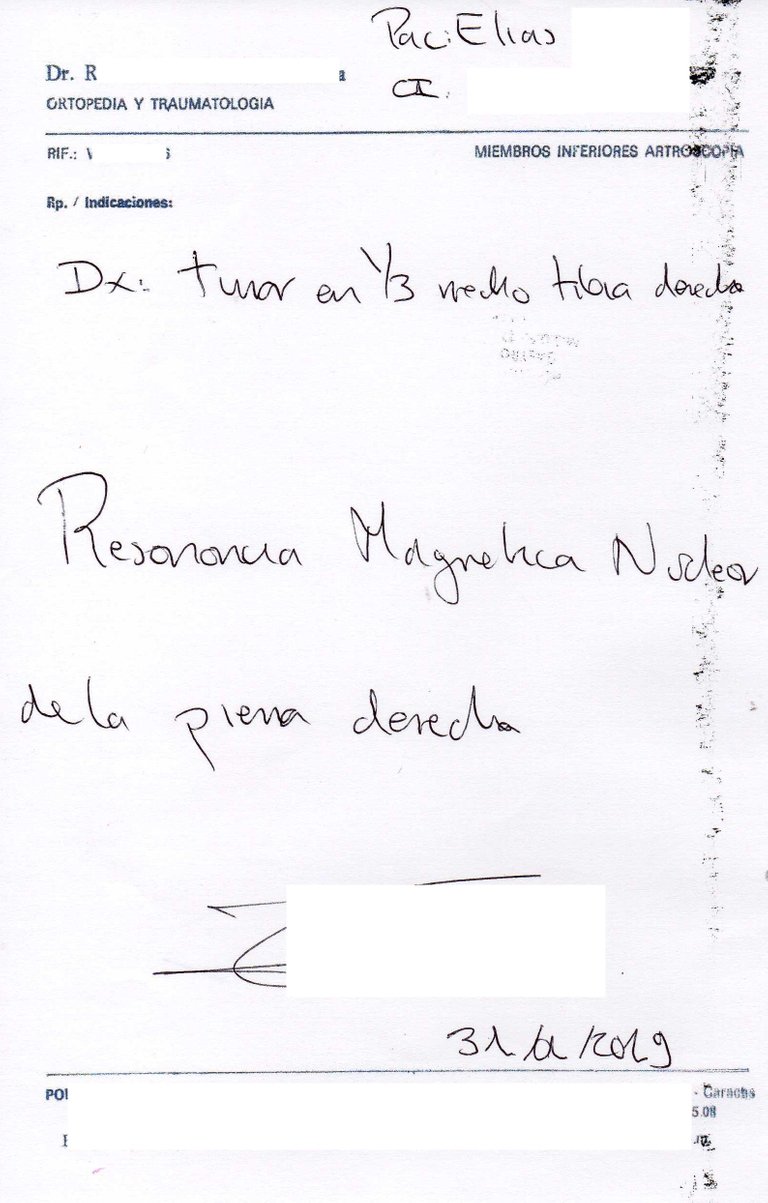 Pac: Elias
Dr. R
CI:
ORTOPEDIA Y TRAUMATOLOGIA
RIF.: V
MIEMBROS INFERIORES ARTROSCOPIA
Rp. / Indicaciones:
Dx: tumor en 1/3 medio tibia derecha
Resonancia Magnetica Nuclear
de la pierna derecha
- Caracas
5.08